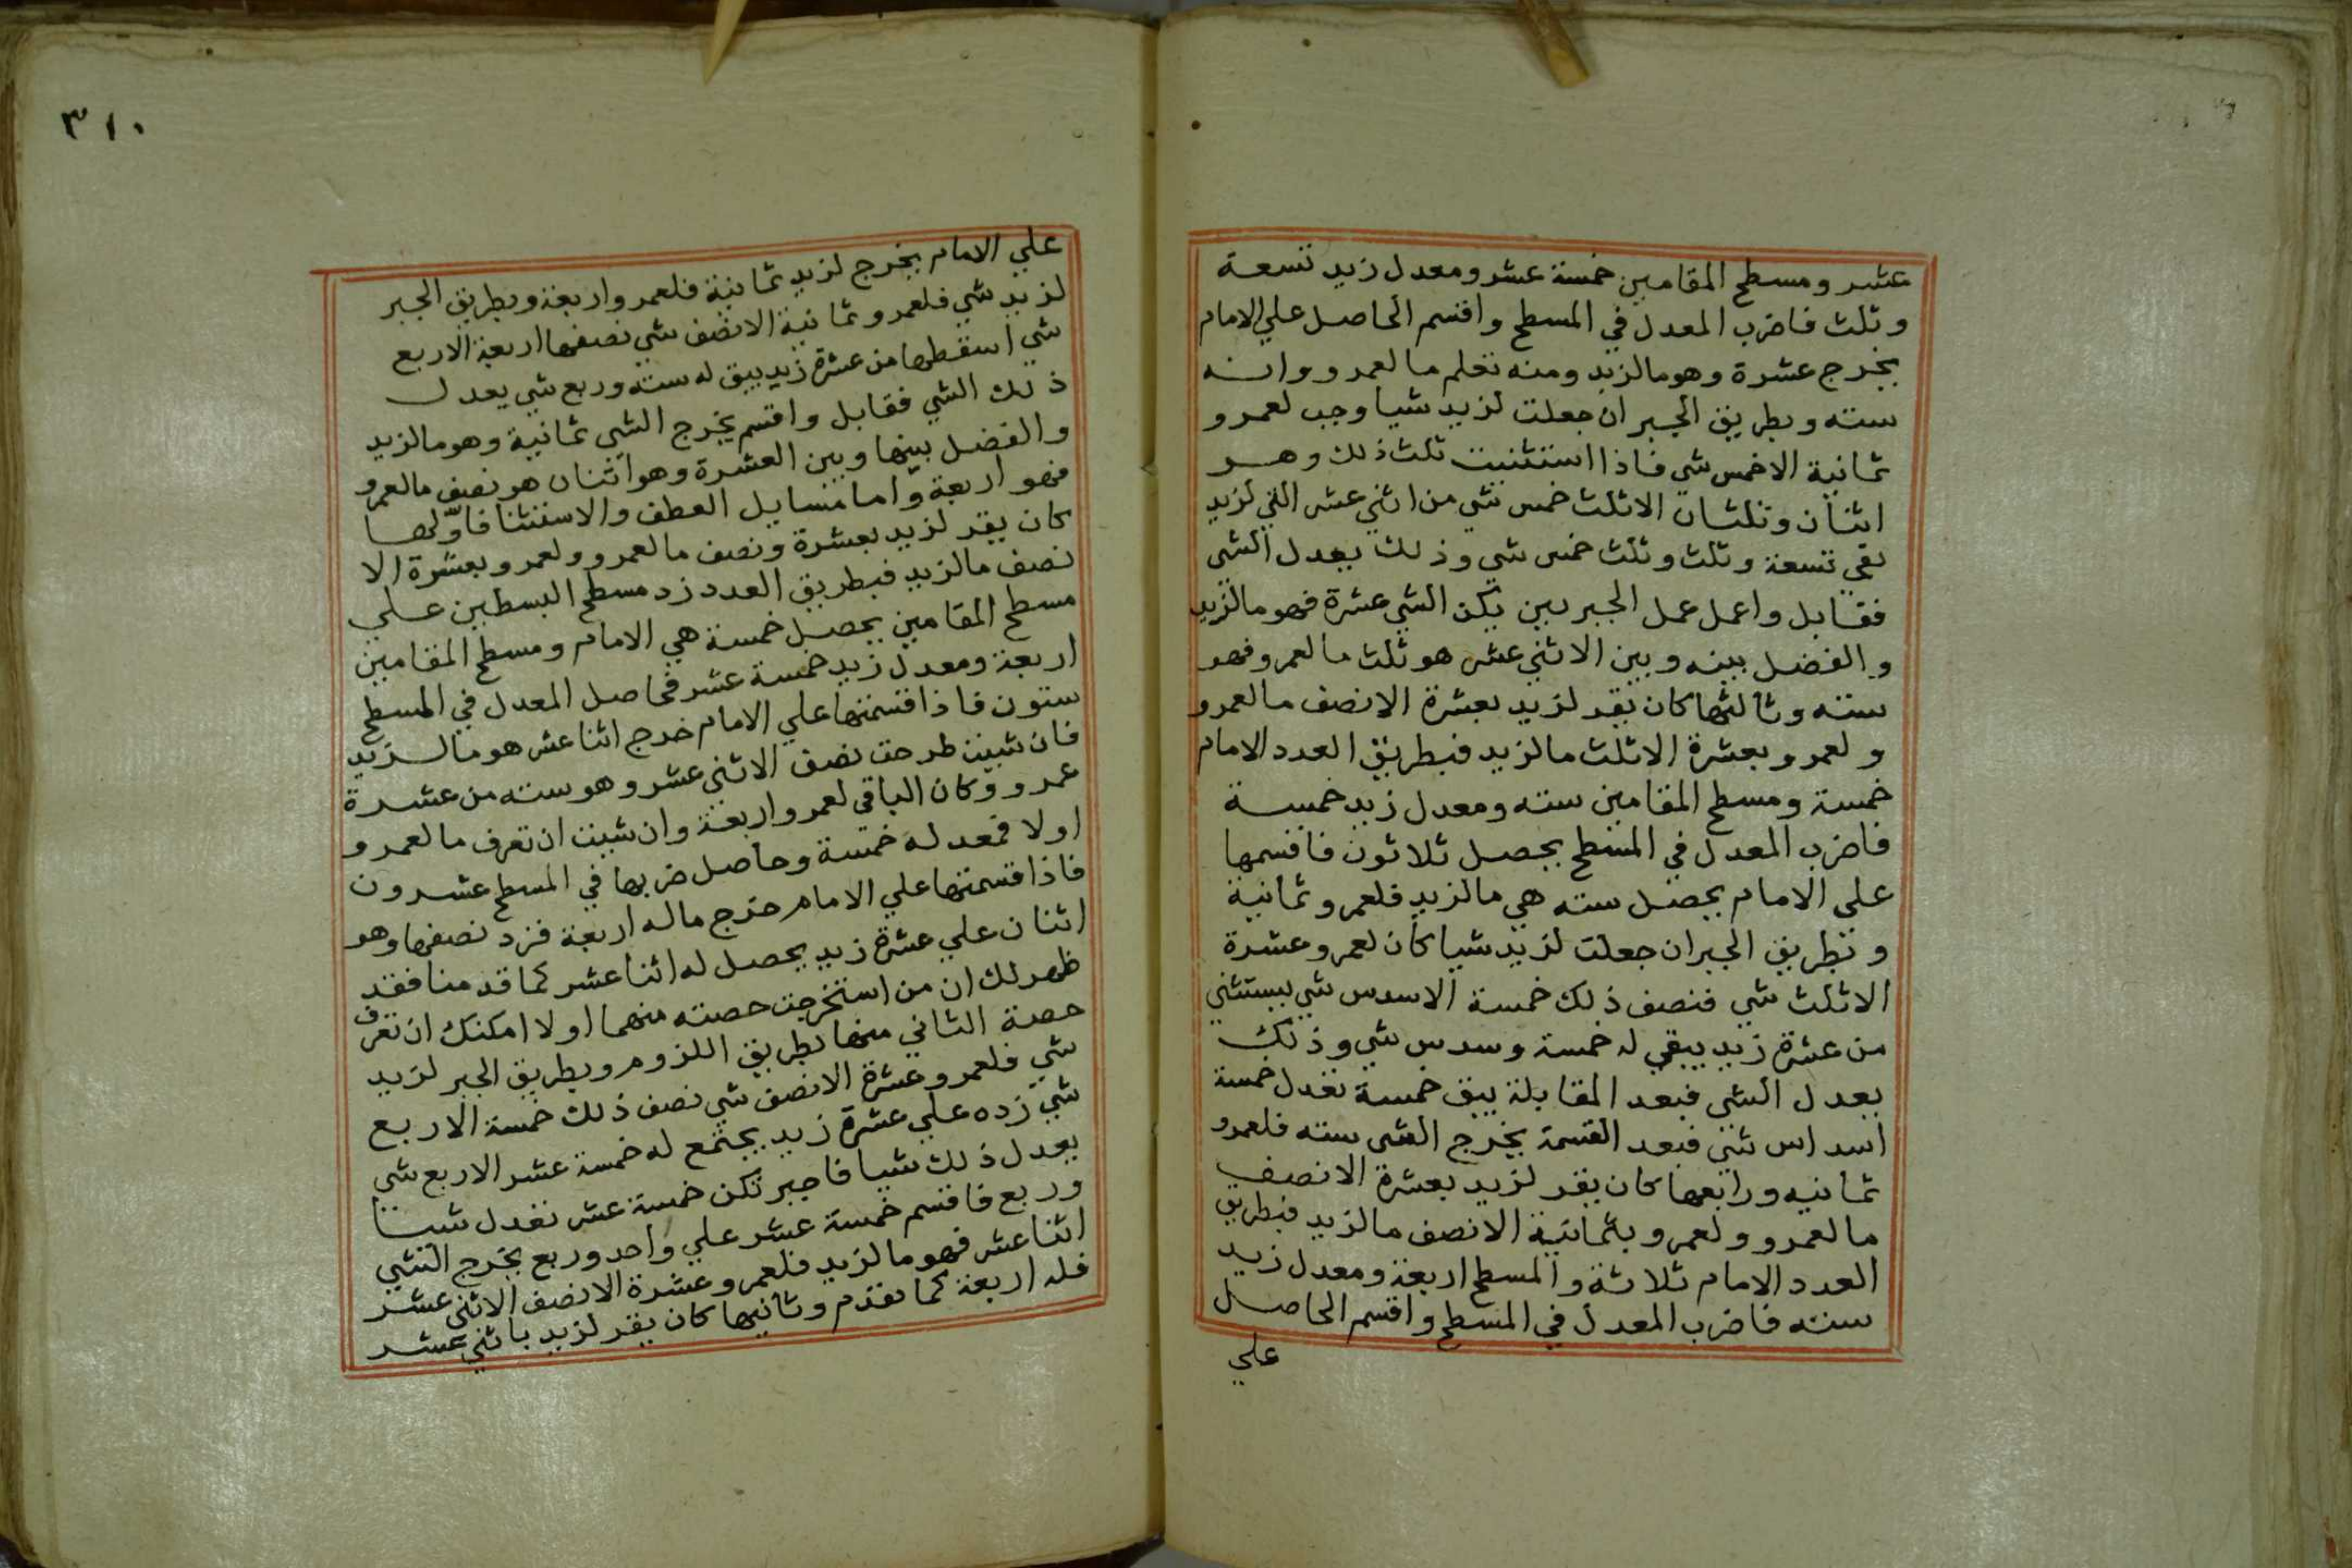 عشر ومسطح المقامين خمسة عشر ومعدل زيد تسعة
وثلث فاضرب المعدل في المسطح واقسم الحاصل علي الامام
يخرج عشرة وهو مالزيد ومنه تعلم مالعمرو وانه
سته وبطريق الجبر ان جعلت لزيد شيا وجب لعمرو
ثمانية الاخمس شي فاذا استثنيت ثلث ذلك وهو
اثنان وثلثان الاثلث خمس شي من اثني عشر التي لزيد
بقي تسعة وثلث وثلث خمس شي وذلك يعدل الشي
فقابل واعمل عمل الجبريين يكن الشي عشرة فهو مالزيد
والفضل بينه وبين الاثني عشر هو ثلث مالعمرو فهو
سته وثالثها كان يقر لزيد بعشرة الانصف مالعمرو
ولعمرو بعشرة الاثلث مالزيد فبطريق العدد الامام
خمسة ومسطح المقامين سته ومعدل زيد خمسة
فاضرب المعدل في المسطح يحصل ثلاثون فاقسمها
علي الامام يحصل سته هي مالزيد فلعمرو ثمانية
وبطريق الجبر ان جعلت لزيد شيا كان لعمرو عشرة
الاثلث شي فنصف ذلك خمسة الاسدس شي يستثني
من عشرة زيد يبقي له خمسة وسدس شي وذلك
يعدل الشي فبعد المقابلة يبق خمسة تعدل خمسة
اسداس شي فبعد القسمة يخرج الشي سته فلعمرو
ثمانيه ورابعها كان يقر لزيد بعشرة الانصف
مالعمرو ولعمرو بثمانية الانصف مالزيد فبطريق
العدد الامام ثلاثة والمسطح اربعة ومعدل زيد
سته فاضرب المعدل في المسطح واقسم الحاصل
علي
٣١٠
علي الامام يخرج لزيد ثمانية فلعمرو اربعة وبطريق الجبر
لزيد شي فلعمرو ثمانية الانصف شي نصفها اربعة الاربع
شي اسقطها من عشرة زيد يبق له سته وربع شي يعدل
ذلك الشي فقابل واقسم يخرج الشي ثمانية وهو مالزيد
والفضل بينها وبين العشرة وهو اثنان هو نصف مالعمرو
فهو اربعة واما مسايل العطف والاستثنا فاولها
كان يقر لزيد بعشرة ونصف مالعمرو ولعمرو بعشرة الا
نصف مالزيد فبطريق العدد زد مسطح البسطين علي
مسطح المقامين يحصل خمسة هي الامام ومسطح المقامين
اربعة ومعدل زيد خمسة عشر فحاصل المعدل في المسطح
ستون فاذا قسمتها علي الامام خرج اثنا عشر هو مالزيد
فان شيت طرحت نصف الاثني عشر وهو سته من عشرة
عمرو وكان الباقي لعمرو اربعة وان شيت ان تعرف مالعمرو
اولا فمعدله خمسة وحاصل ضربها في المسطح عشرون
فاذا قسمتها علي الامام خرج ماله اربعة فزد نصفها وهو
اثنان علي عشرة زيد يحصل له اثنا عشر كما قدمنا فقد
ظهر لك ان من استخرجت حصته منهما اولا امكنك ان تعرف
حصة الثاني منهما بطريق اللزوم وبطريق الجبر لزيد
شي فلعمرو عشرة الانصف شي نصف ذلك خمسة الاربع
شي زده علي عشرة زيد يجتمع له خمسة عشر الاربع شي
يعدل ذلك شيا فاجبر تكن خمسة عشر تعدل شيا
وربع فاقسم خمسة عشر علي واحد وربع يخرج الشي
اثنا عشر فهو مالزيد فلعمرو عشرة الانصف الاثني عشر
فله اربعة كما تقدم وثانيها كان يقر لزيد باثني عشر